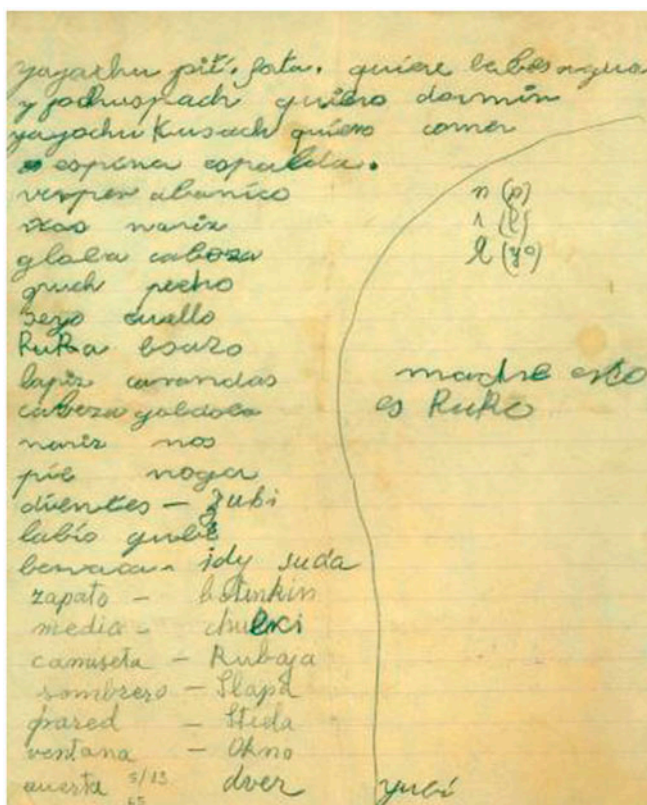 yayachu piti. gota. quiere beber agua
yjochuspach quiero dormin
yayochu Kusach quiero comer
espina espalda.
vesper abanico
nariz
glava cabeza
gruch pecho
seyo cuello
RuKa bsazo
lapiz carandas
cabeza galdova
nariz nos
pie noga
dientes - zubi
labio gubi
- idy suda
zapato - botinkin
media - chulki
camiseta - Rubaja
sombrero - Slapa
pared - Stiela
ventana - Okno
auerta 5/13 dver
65
n (p)
л (l)
я (ya)
madre esto
es RuKo
yubi